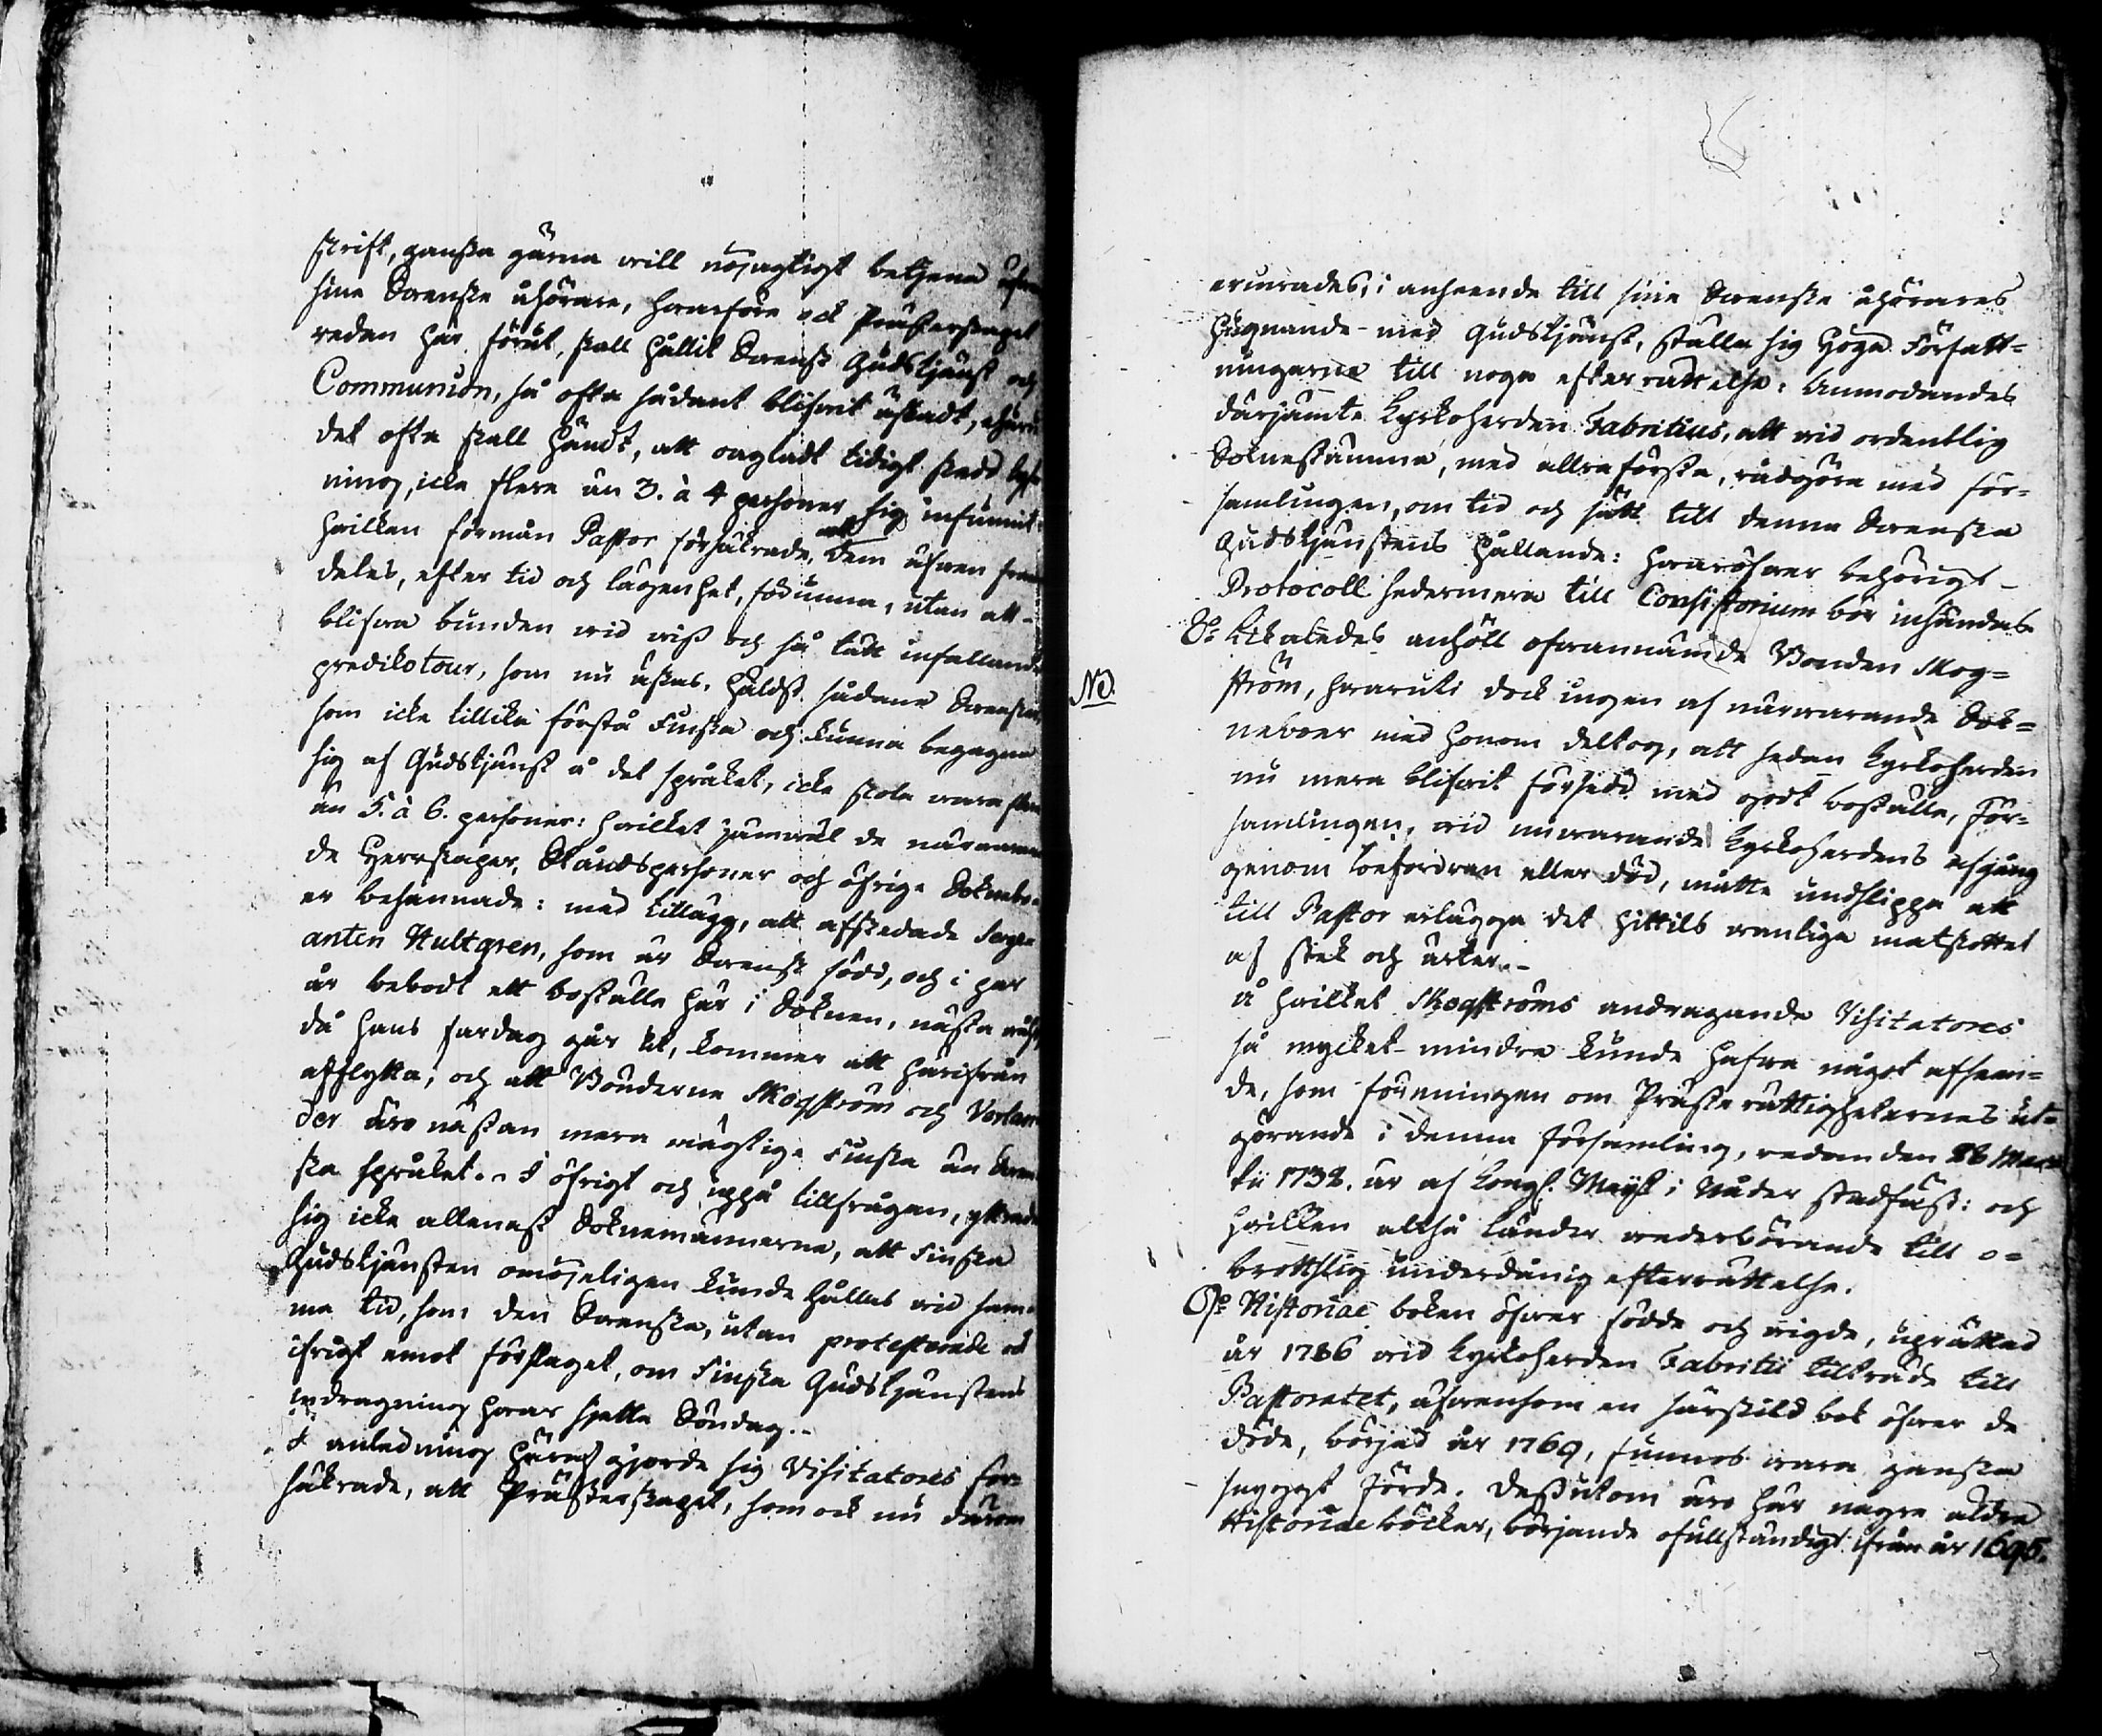 skrift, ganska gärna will nöjagtigt betjena äfwen
sine Swenske åhörare, hwarföre ock Prästerskapet
redan här förut, skall hållit Swensk Gudstjänst och
Communion, så ofta sådant blifwit äskadt, ehuru
det ofta skall händt, att oagtadt tidigt skedd lys-
ning, icke flere än 3. à 4 personer sig infunnit:
hwilken förmån Pastor försäkrade, att dem äfwen fram-
deles, efter tid och lägenhet, förunna, utan att
blifwa bunden wid wiss och så tätt infallande
predikotour, som nu äskas, häldst sådane Swenskar,
som icke tillika förstå Finska och kunna begagna
sig af Gudstjänst å det språket, icke skola wara flere
än 5. à 6. personer: hwilket jämwäl de närwaran-
de Herrskaper, Ståndspersoner och öfrige Sokneboer
er besannade: med tillägg, att afskedade Serge-
anten Hultgren, som är Swensk född, och i par
år bebodt ett boställe här i Soknen, nästa
då hans fardag går ut, kommer att härifrån
afflytta; och att Bönderne Skogström och
der äro nästan mera mägtige Finska än Swen-
ska språket. I öfrigt och uppå tillfrågan, yttrade
sig icke allenast Soknemännerne, att Finska
Gudstjänsten omöjeligen kunde hållas wid sam-
ma tid, som den Swenska, utan protesterade ock
ifrigt emot förslaget, om Finska Gudstjänstens
indragning hwar sjette Söndag.
I anledning häraf gjorde sig Visitatores för-
säkrade, att Prästerskapet, som ock nu därom
ermrades, i anseende till sine Swenske åhörares
hugnande med Gudstjänst, ställa sig Höga Författ-
ningarne till noga efterrättelse: Anmodandes
därjämte Kyrkoherden Fabritius, att wid ordentlig
Soknestämma, med allraförsta, rådgöra med för-
samlingen, om tid och sätt till denna Swenska
Gudstjänstens hållande: hwaröfwer behörigt
Protocoll sedermera till Consistorium bör insändas.
8o Likaledes anhöll ofwannämde Bonden Skog-
NB. ström, hwaruti dock ingen af närwarande Sok-
neboer med honom deltog, att sedan Kyrkoherden
nu mera blifwit försedd med godt boställe, För-
samlingen, wid nuwarande Kyrkoherdens afgång
genom befordran eller död, måtte undslippa att
till Pastor erlägga det hittils wanliga matskottet
af stek och ärter.
å hwilket Skogströms andragande Visitatores
så mycket mindre kunde hafwa något afseen-
de, som föreningen om Prästerättigheternes ut-
görande i denna församling, redan den 26 Mar-
tii 1732. är af Kongl. Maj:t i Nåder stadfäst: och
hwilken altså länder wederbörande till o-
brottslig underdånig efterrättelse.
9o Historiae boken öfwer födde och wigde, uprättad
år 1786 wid Kyrkoherden Fabritii tillträde till
Pastoratet, äfwensom en särskild bok öfwer de
döde, börjad år 1769, funnos wara ganska
snyggt förde. Dessutom äro här några äldre
Historiae böcker, börjande ofullständigt ifrån år 1695.